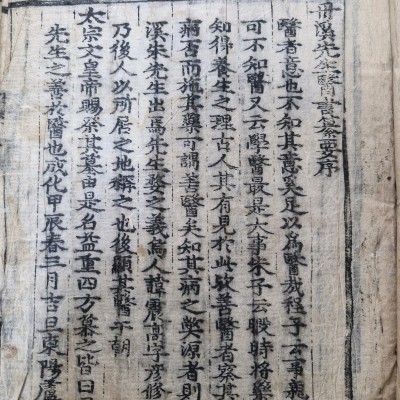 丹溪先生醫書纂要序
醫者意也不知其意奚足以爲醫哉程子云事親
可不知醫又云學醫最是大事朱子云暇時將藥
知得養生之理古人其有見於此歟善醫者察其
病否而施其藥可謂善醫矣知其病之奧源者則
溪朱先生出焉先生婺之義烏人諱震亨字彦修
乃後人以所居之地稱之也後顯其醫于朝
太宗文皇帝賜祭其墓由是名益重四方業之皆曰
先生之善於醫也成化甲辰春三月吉旦東陽盧